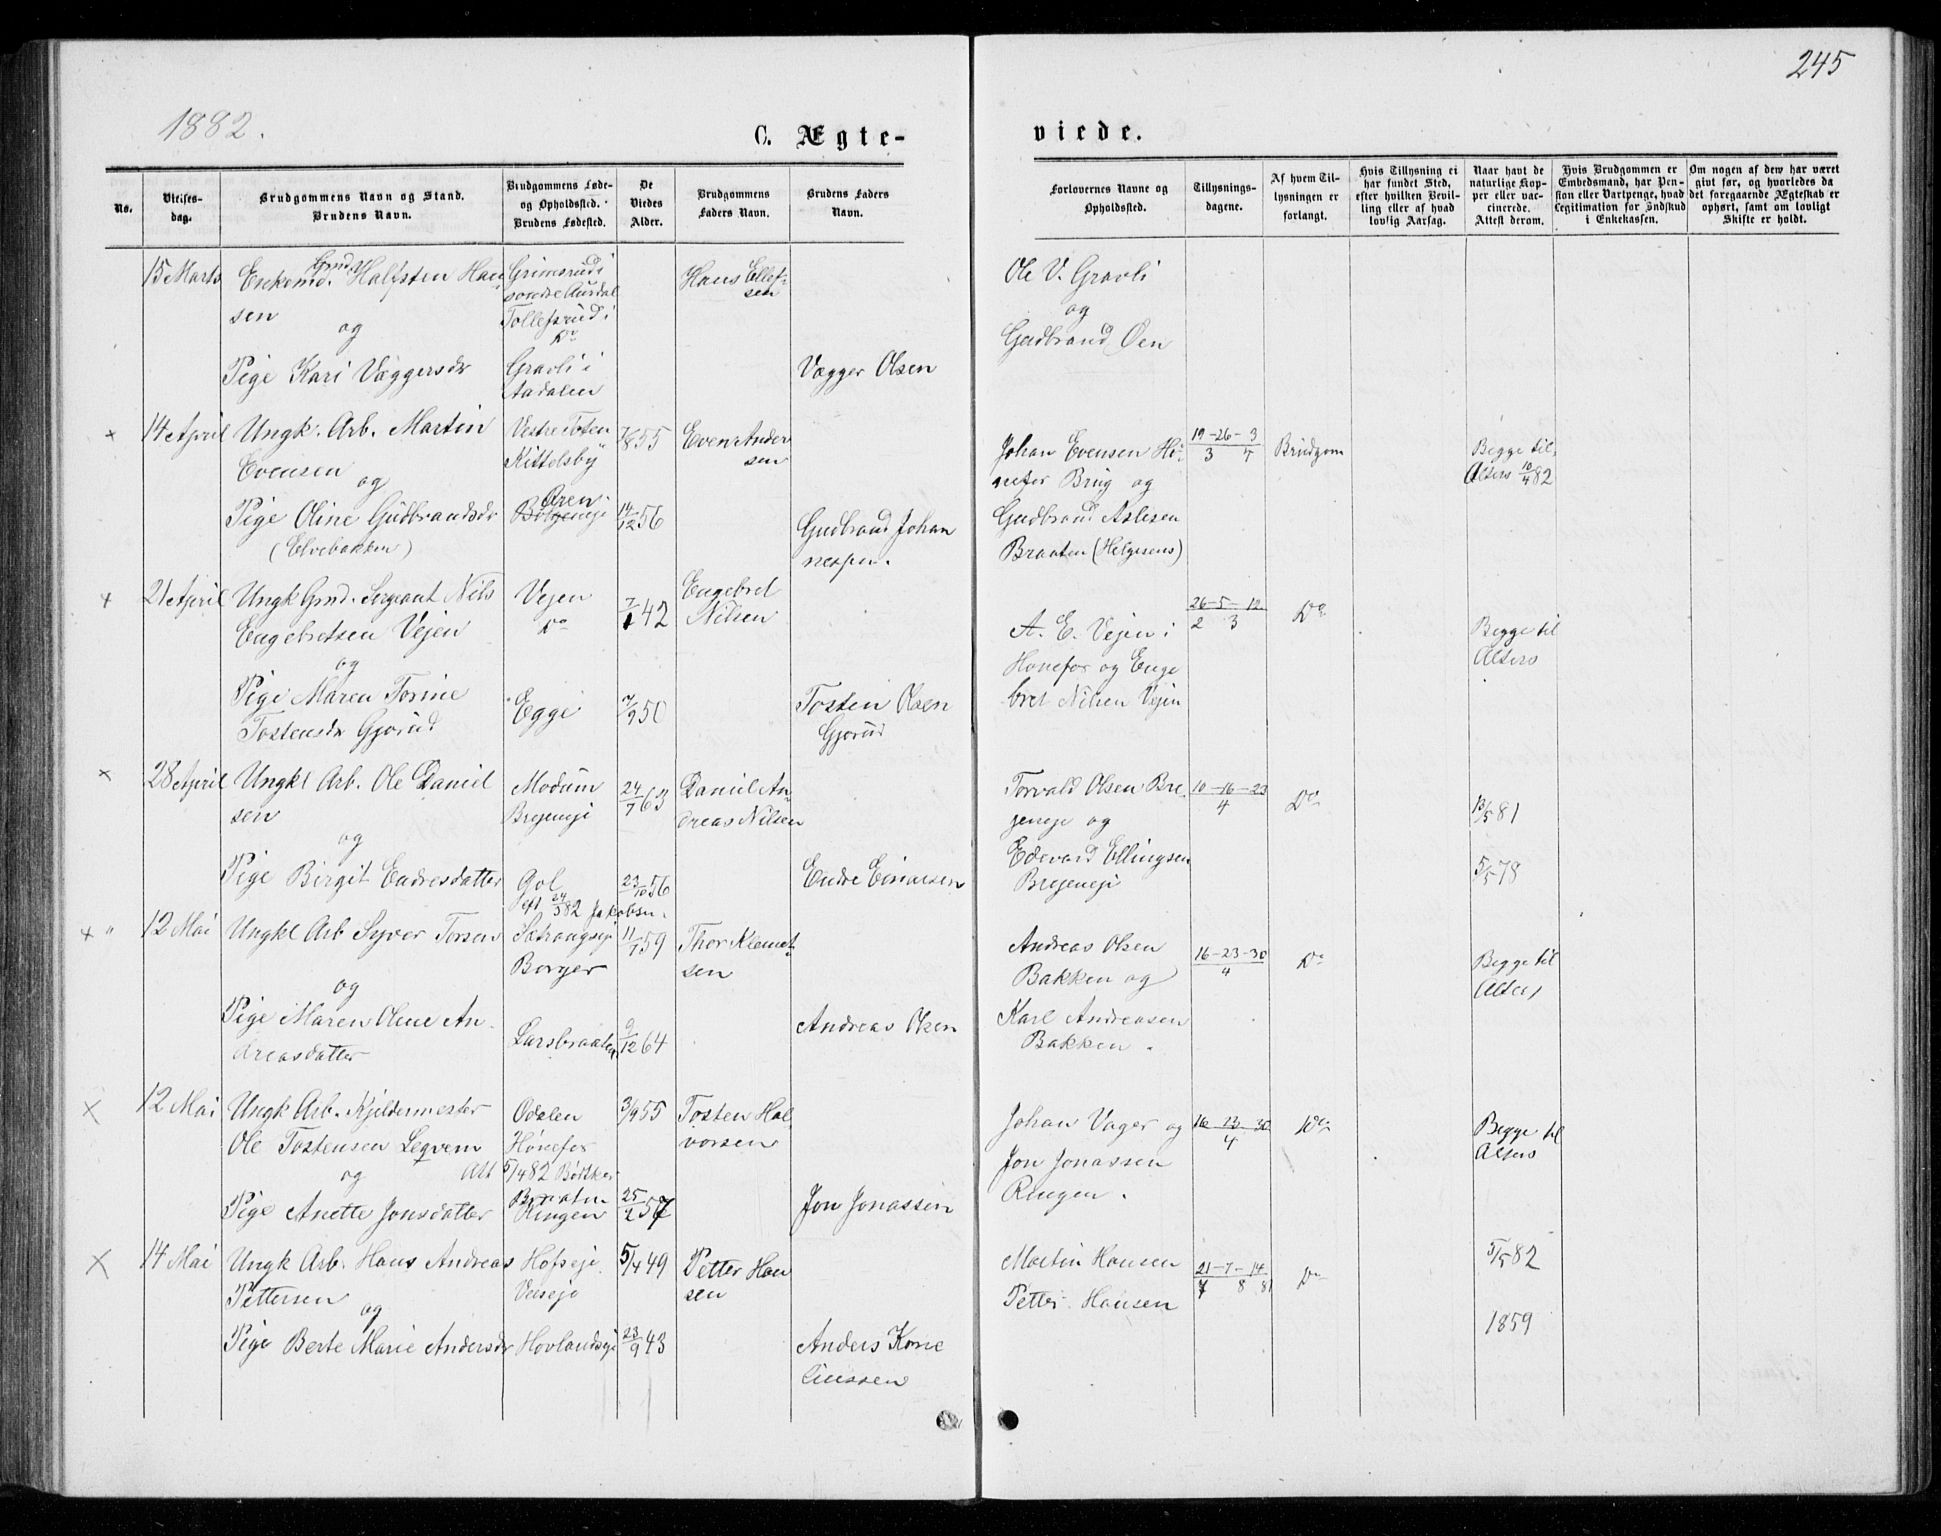 245
1882.
C. Ægte-
viede.
No.
Vielses-
dag.
Brudgommens Navn og Stand.
Brudens Navn.
Brudgommens Føde-
og Opholdssted.
Brudens Fødested.
De
Viedes
Alder.
Brudgommens
Faders Navn.
Brudens Faders
Navn.
Forlovernes Navne og
Opholdssted.
Tillysnings-
dagene.
Af hvem Til-
lysningen er
forlangt.
Hvis Tillysning ei
har fundet Sted,
efter hvilken Bevil-
ling eller af hvad
lovlig Aarsag.
Naar havt de
naturlige Kop-
per eller vac-
cinerede.
Attest derom.
Hvis Brudgommen er
Embedsmand, har Pen-
sion eller Vartpenge, hvad
Legitimation for Indskud
i Enkekassen.
Om nogen af dem har været
givt før, og hvorledes da
det foregaaende Ægteskab er
ophørt, samt om lovligt
Skifte er holdt.
15 Marts
Enkemd. Gmd. Halfsten Han
sen
og
Pige Kari Væggersdr
Grimsrud i
søndre Aurdal
Tollefsrud i
Do
Gravli i
Aadalen
Hans Ellef-
sen
Vægger Olsen
Ole V. Gravli
og
Gudbrand Øen
x 14 April
Ungk. Arb. Martin
Evensen
og
Pige Oline Gudbrandsdr
(Elvebakken)
Vestre Toten
Kittelsby
Oren
7/8 55
14/12 56
Even Ander
sen
Gudbrand Johan
nessen.
Johan Evensen Hø-
nefos Brug og
Gudbrand Aslesen
Braaten (Helgesens)
19-26-3
3 4
Brudgom
Begge til
Alters 10/4 82
x 21 April
Ungk Gmd. Sergeant Nils
Engebretsen Vejen
og
Pige Maren Torine
Tostensdr Gjørud
Vejen
Do
Egge
7/1 42
7/9 50
Engebret
Nilsen
Tosten Olsen
Gjørud
A. E. Vejen i
Hønefos og Enge
bret Nilsen Vejen
26-5-12
2 3
Do
Begge til
Alters
x 28 April
Ungkl Arb. Ole Daniel
sen
og
Pige Birgit Endresdatter
Modum
Bregeneje
Gol
24/7 63
23/10 56
Daniel An-
dreas Nilsen
Endre Einarsen
Torvald Olsen Bre
geneje og
Edevard Ellingsen
Bregeneje
10-16-23
4
Do
13/5 81
5/5 78
x " 12 Mai
Ungkl Arb Syver Torsen
og
Pige Maren Oline An
dreasdatter
24/5 82 Jakobsn.
Sætrangseje
Borger
Larsbraaten
11/7 59
9/12 64
Thor Klemet-
sen
Andreas Olsen
Andreas Olsen
Bakken og
Karl Andreasen
Bakken.
16-23-30
4
Do
Begge til
Alters
x 12 Mai
Ungk Arb. Kjeldermester
Ole Tostensen Leqvem
og
Pige Anette Jonsdatter
Odalen
Hønefos
Att 5/4 82 Bødtker
Braaten
Ringen
3/9 55
25/2 57
Tosten Hal
vorsen
Jon Jonassen
Johan Vager og
Jon Jonassen
Ringen.
16 23 30
4
Do
Begge til
Alters
x 14 Mai
Ungk Arb. Hans Andreas
Pettersen
og
Pige Berte Marie Andersdr
Hofseje
Veiseje
Hovlandseje
5/4 49
23/9 43
Petter Han
sen
Anders Korne
liussen
Martin Hansen
Petter Hansen
21-7-14
7 8 81
Do
5/5 82
1859